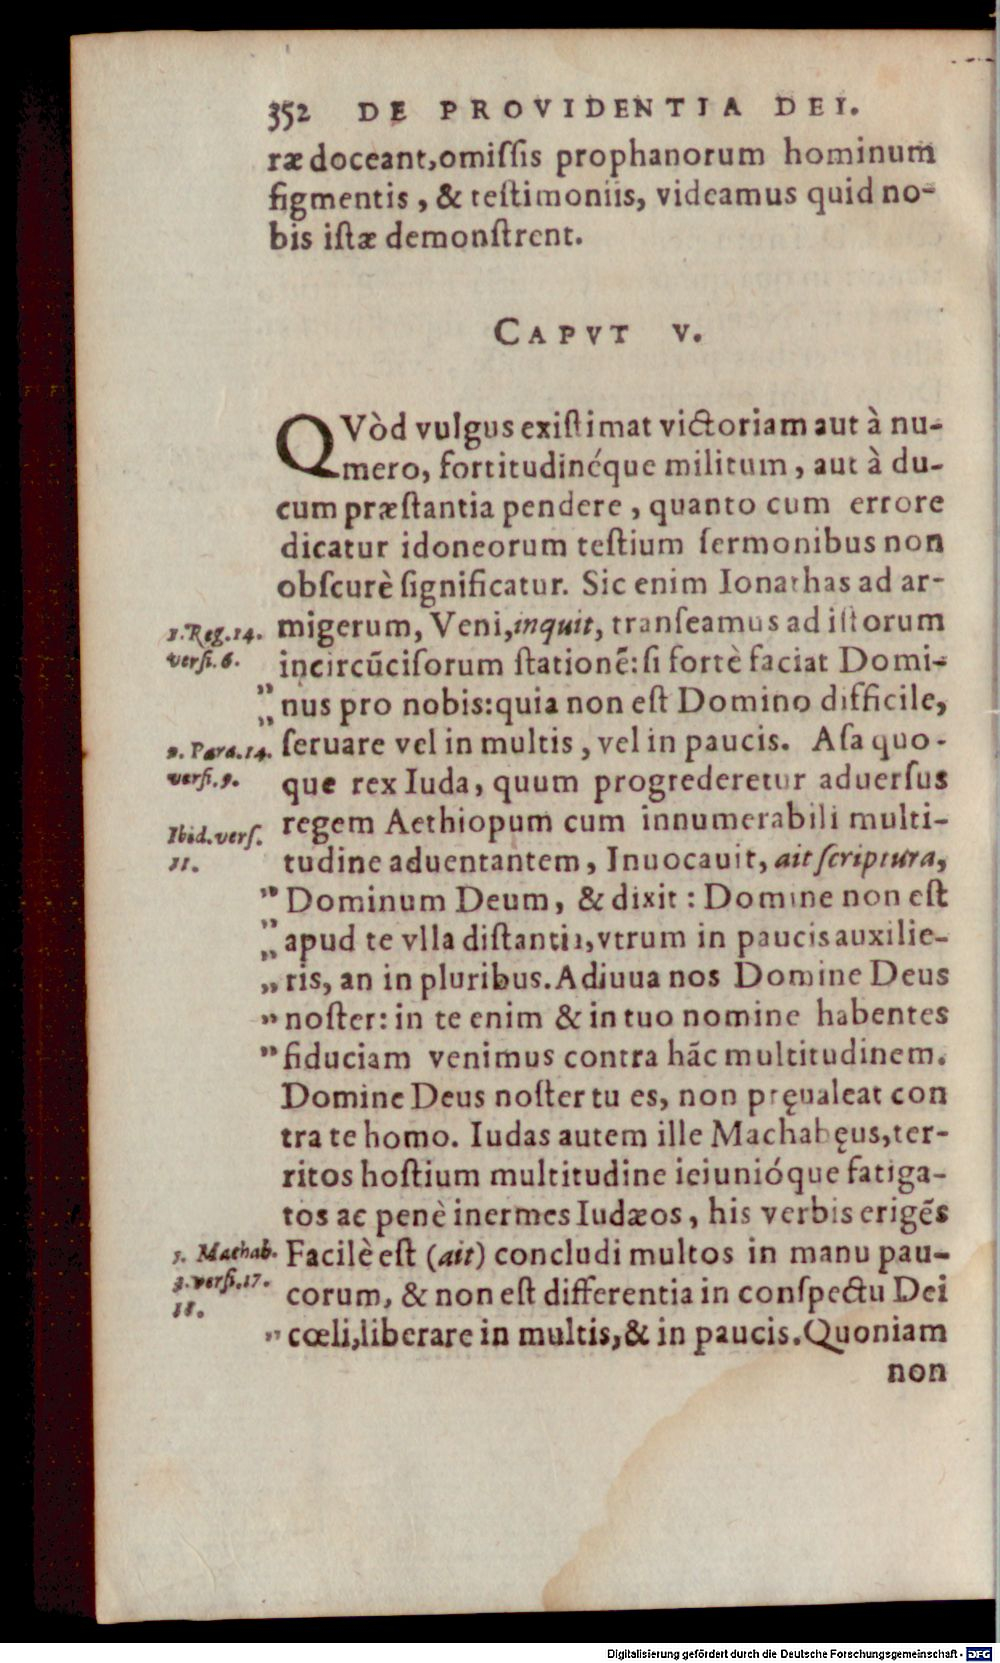 352 DE PROVIDENTIA DEI.
ræ doceant, omiſsis prophanorum hominum
figmentis, & teſtimoniis, videamus quid no-
bis iſtæ demonſtrent.
CAPVT V.
QVòd vulgus exiſtimat victoriam aut à nu-
mero, fortitudinéque militum, aut à du-
cum præſtantia pendere, quanto cum errore
dicatur idoneorum teſtium ſermonibus non
obſcurè ſignificatur. Sic enim Ionathas ad ar-
1. Reg. 14. migerum, Veni, inquit, tranſeamus ad iſtorum
verſi. 6. incircūciſorum ſtationē: ſi fortè faciat Domi-
„ nus pro nobis: quia non eſt Domino difficile,
2. Para. 14. ſeruare vel in multis, vel in paucis. Aſa quo-
verſi. 9. que rex Iuda, quum progrederetur aduerſus
Ibid. verſ. regem Aethiopum cum innumerabili multi-
11. tudine aduentantem, Inuocauit, ait ſcriptura,
” Dominum Deum, & dixit: Domine non eſt
„ apud te vlla diſtantia, vtrum in paucis auxilie-
„ ris, an in pluribus. Adiuua nos Domine Deus
” noſter: in te enim & in tuo nomine habentes
” fiduciam venimus contra hāc multitudinem.
Domine Deus noſter tu es, non pręualeat con
tra te homo. Iudas autem ille Machabęus, ter-
ritos hoſtium multitudine ieiunióque fatiga-
tos ac penè inermes Iudæos, his verbis erigēs
1. Machab. Facilè eſt (ait) concludi multos in manu pau-
3. verſi. 17. corum, & non eſt differentia in conſpectu Dei
18.
” cœli, liberare in multis, & in paucis. Quoniam
non
Digitalisierung gefördert durch die Deutsche Forschungsgemeinschaft - DFG